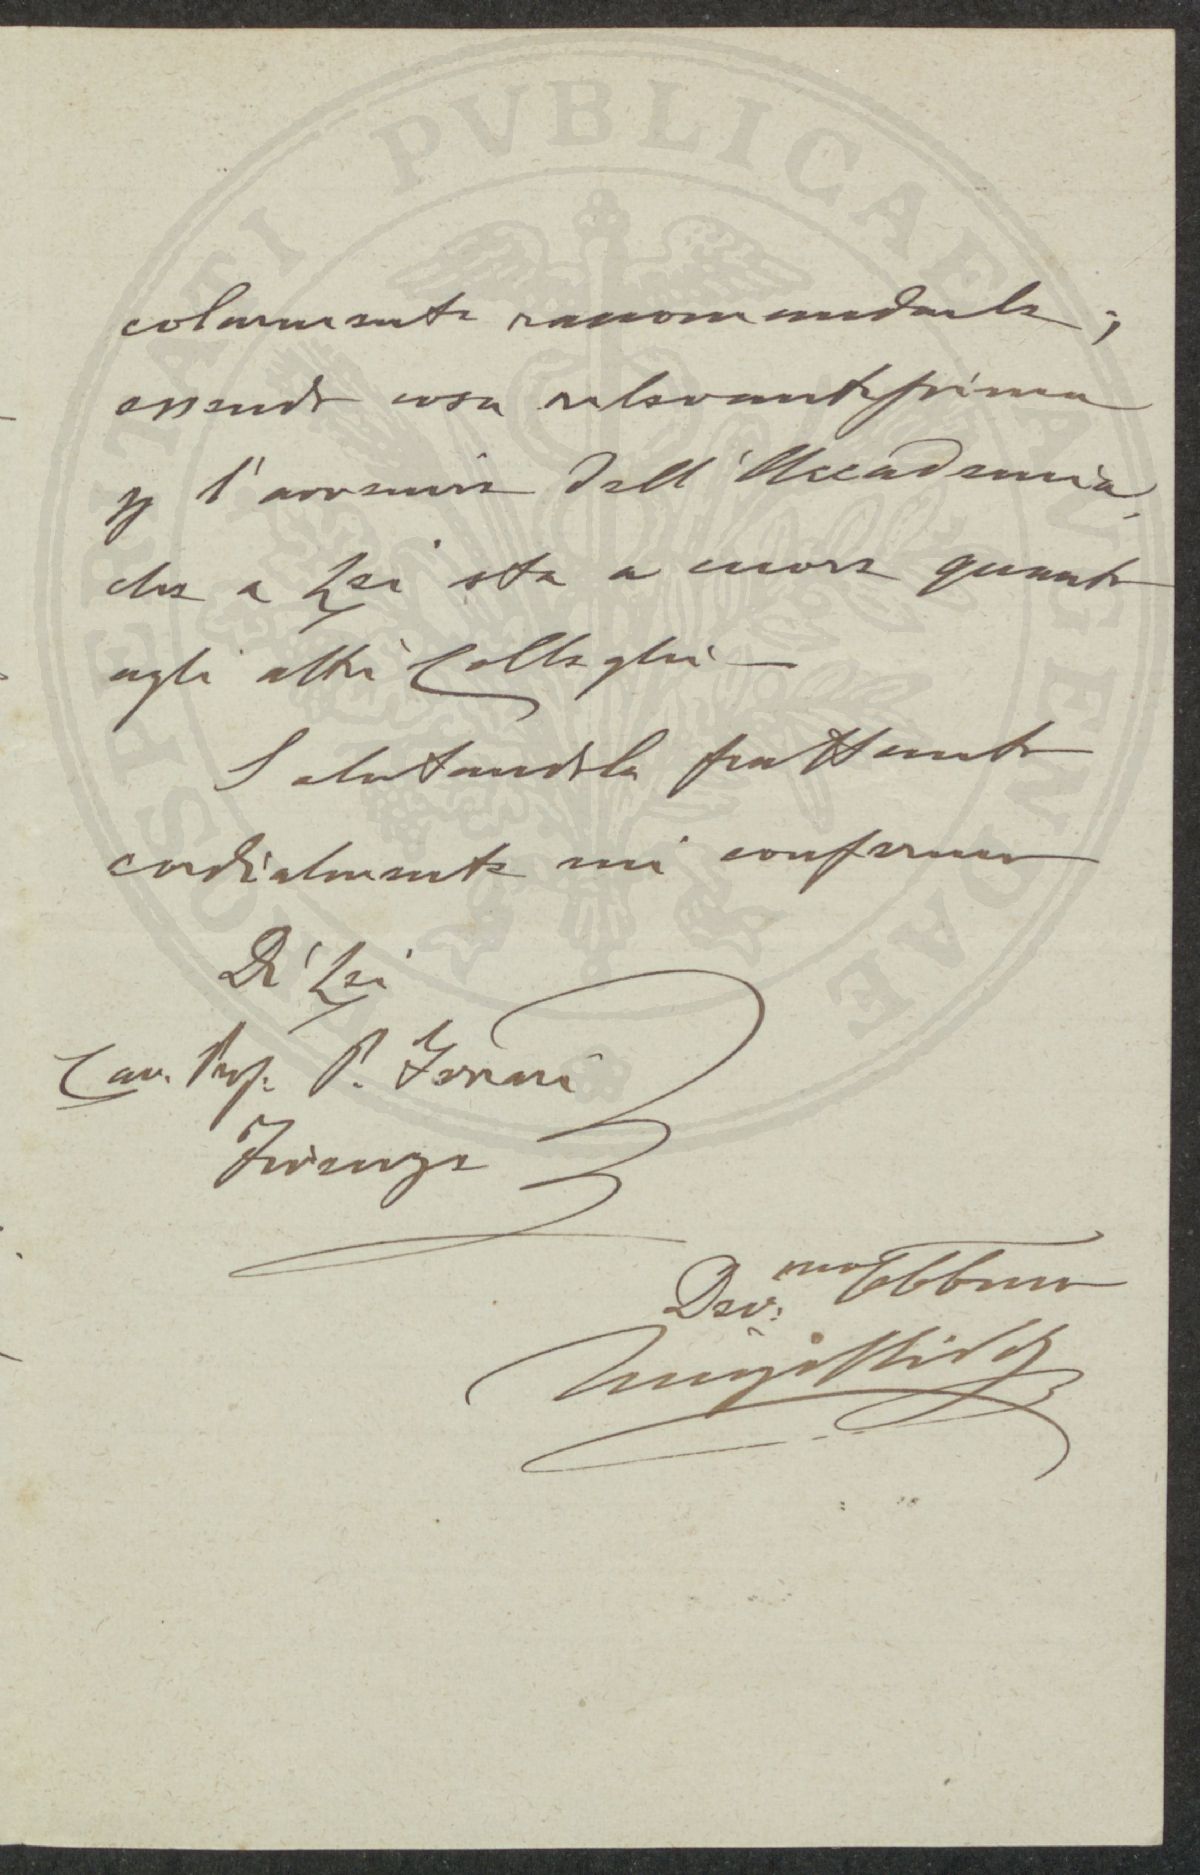 colarmente raccomandarle;
essendo cosa rilevantissima
p l'avvenire dell'Accademia,
che a Lei sta a cuore quanto
agli altri Colleghi —
Salutandola frattanto
cordialmente mi confermo
Di Lei
Cav. Prof. P. Ferrari
Firenze
Dev.mo Obbmo
PROSPERITATI PVBLICAE AVGENDAE